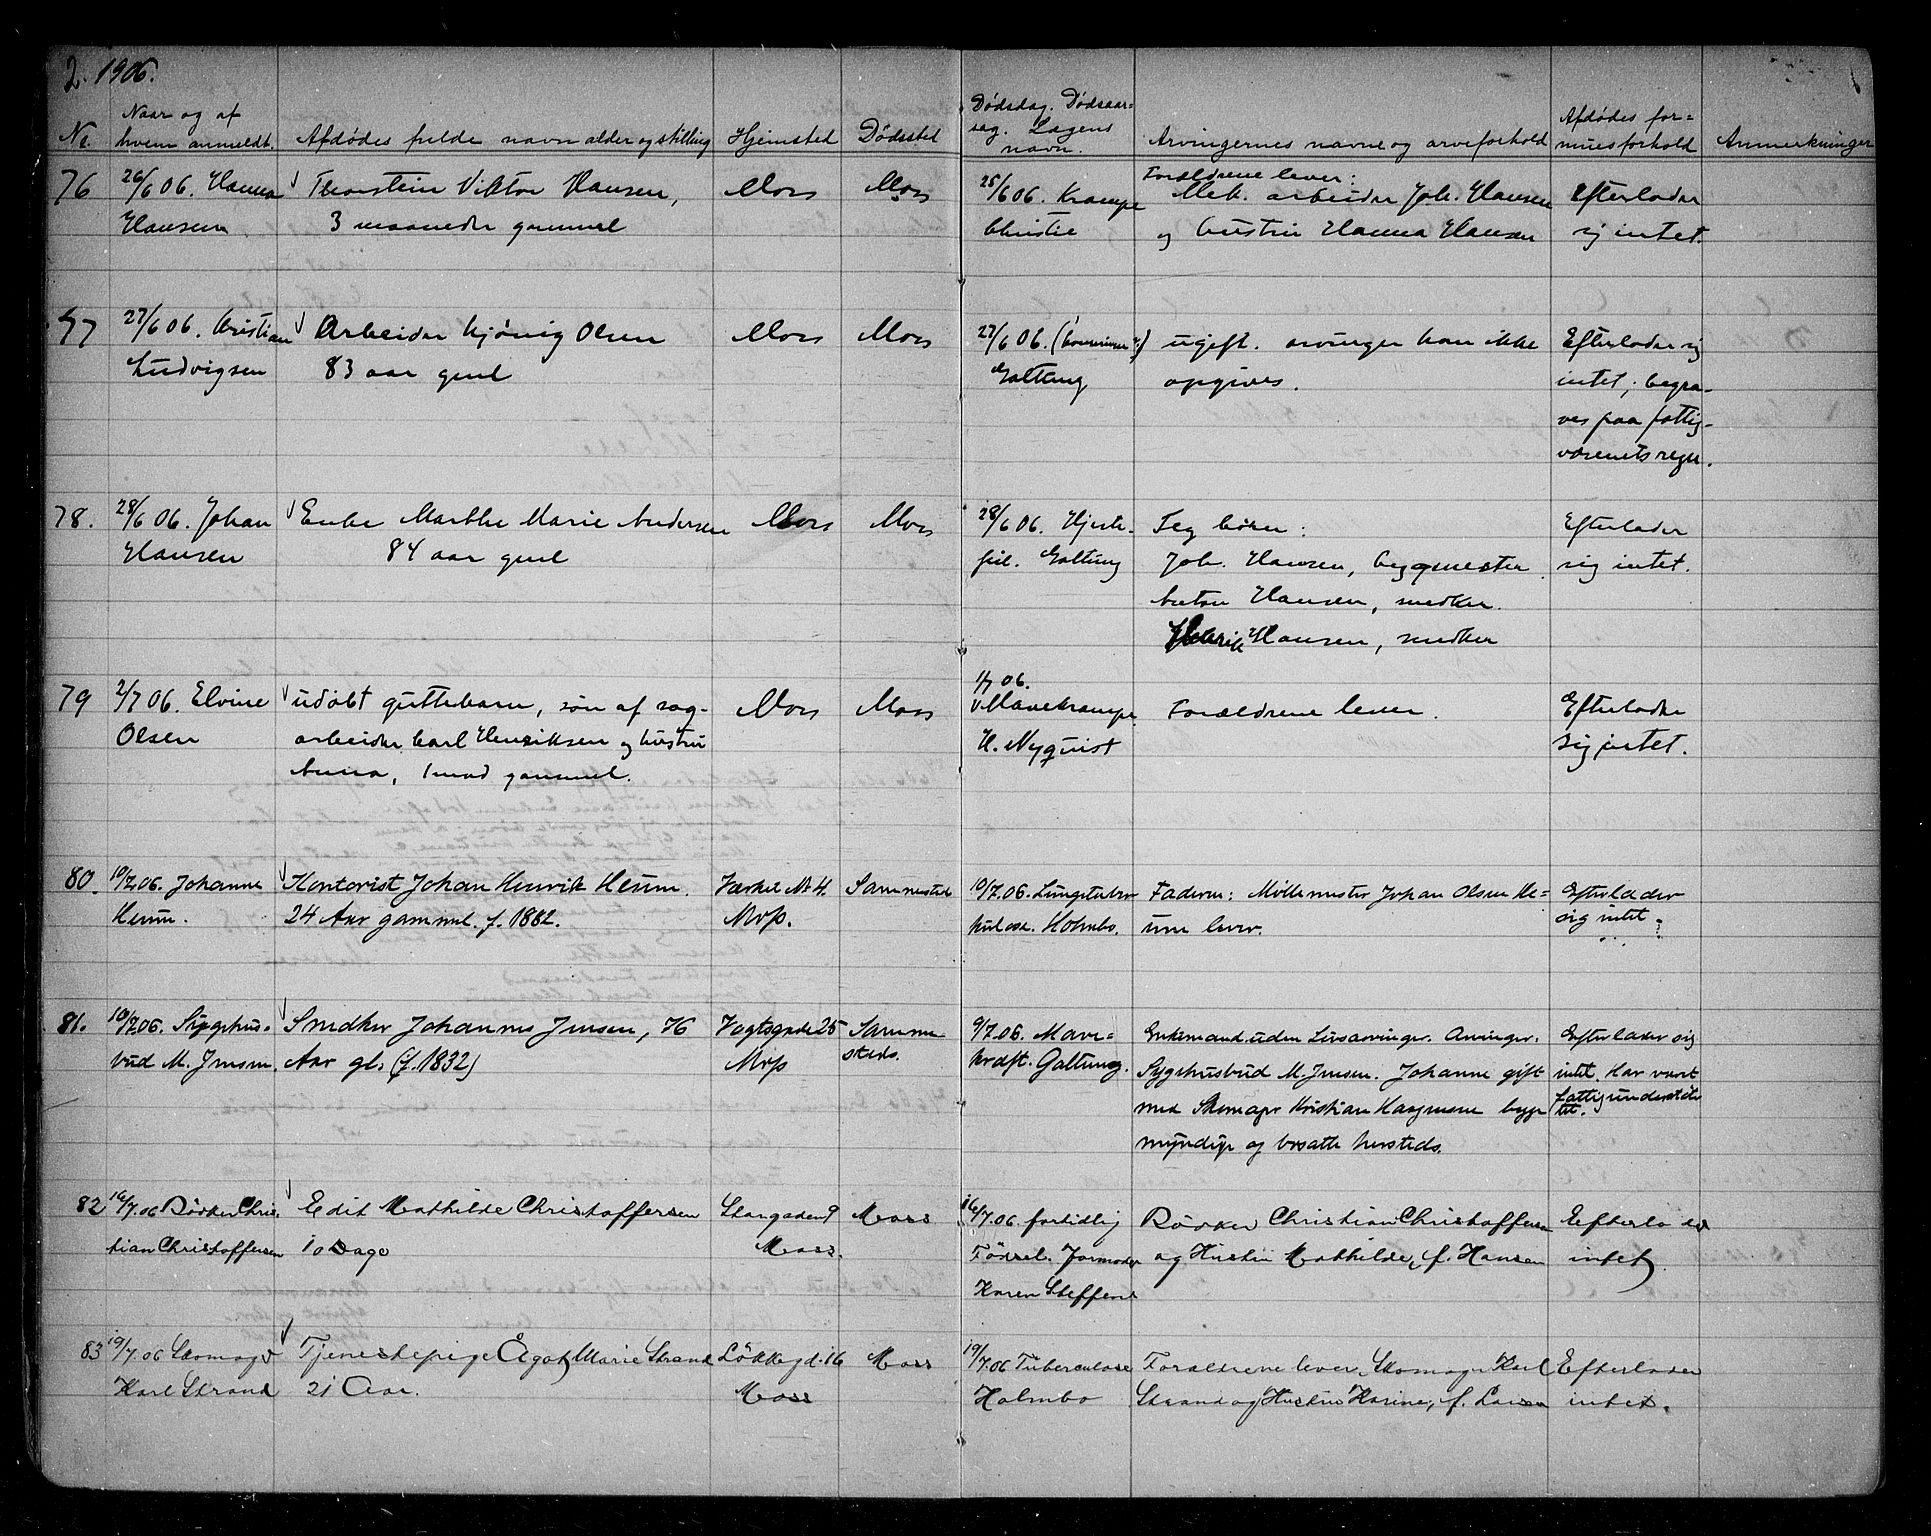 2. 1906.
Nr.
Naar og af
hvem anmeldt.
Afdødes fulde navn alder og stilling
Hjemsted
Dødssted
Dødsdag. Dødsaar=
sag. Lægens
navn.
Arvingernes navne og arveforhold
Afdødes for=
muesforhold
Anmerkninger
76
26/6 06. Hanna
Hansen
Thorstein Viktor Hansen,
3 maaneder gammel
Moss
Moss
25/6 06. Krampe
Christie
Forældrene lever:
Mek. arbeider Joh. Hansen
og hustru Hanna Hansen
Efterlader
sig intet.
77
27/6 06. Kristian
Ludvigsen
Arbeider Kjønig Olsen
83 aar gml
Moss
Moss
27/6 06.
Galtung
ugift. arvinger kan ikke
opgives.
Efterlader sig
intet; begra-
ves paa fattig-
væsenets regn.
78.
28/6 06. Johan
Hansen
Enke Marthe Marie Andersen
84 aar gml
Moss
Moss
28/6 06. Hjerte-
feil. Galtung
Joh. Hansen, bygmester
Anton Hansen, snedker.
Hansen, snedker
Efterlader
sig intet.
79
2/7 06. Elvine
Olsen
udøbt guttebarn, søn af sag-
arbeider Carl Henriksen og hustru
Anna, 1 mnd gammel.
Moss
Moss
1/7 06.
Mavekrampe
H. Nyquist
Forældrene lever.
Efterlader
sig intet.
80.
10/7 06. Johanne
Heum.
Kontorist Johan Henrik Heum.
24 Aar gammel. f. 1882.
Værket No 4.
Moss.
Sammesteds
10/7 06. Lungetuber
kulose. Holmbo.
Faderen: Møllemester Johan Olsen He=
um lever.
Efterlader
sig intet.
81.
10/7 06. Sygehus-
bud M. Jensen,
Snedker Johannes Jensen, 76
Aar gl. (f. 1832)
Vogtsgade 25
Moss
Samme
steds.
9/7 06. Mave=
kræft. Galtung.
Enkemand uden Livsarvinger. Arvinger:
Sygehusbud M. Jensen. Johanne gift
med Skomager Kristian Haagensen begge
myndige og bosatte hersteds.
Efterlader sig
intet. Har været
fattigunderstøt
tet.
82
16/7.06 Bødker Chris.
tian Christoffersen
Edit Mathilde Christoffersen
10 Dage
Skogaden 9
Moss.
Moss
16/7.06. fortidlig
Fødsel. Jormoder
Karen Steffens
Bødker Christian Christoffersen
og Hustru Mathilde, f. Hansen
Efterlader
intet.
83
19/7.06 Skomager
Karl Strand
Tjenestepige Agot Marie Strand
21 Aar.
Løkkegd. 16
Moss
Moss
19/7.06 Tuberculose
Holmbo
Forældrene lever, Skomager Karl
Strand og Hustru Karine, f. Larsen
Efterlader
intet.